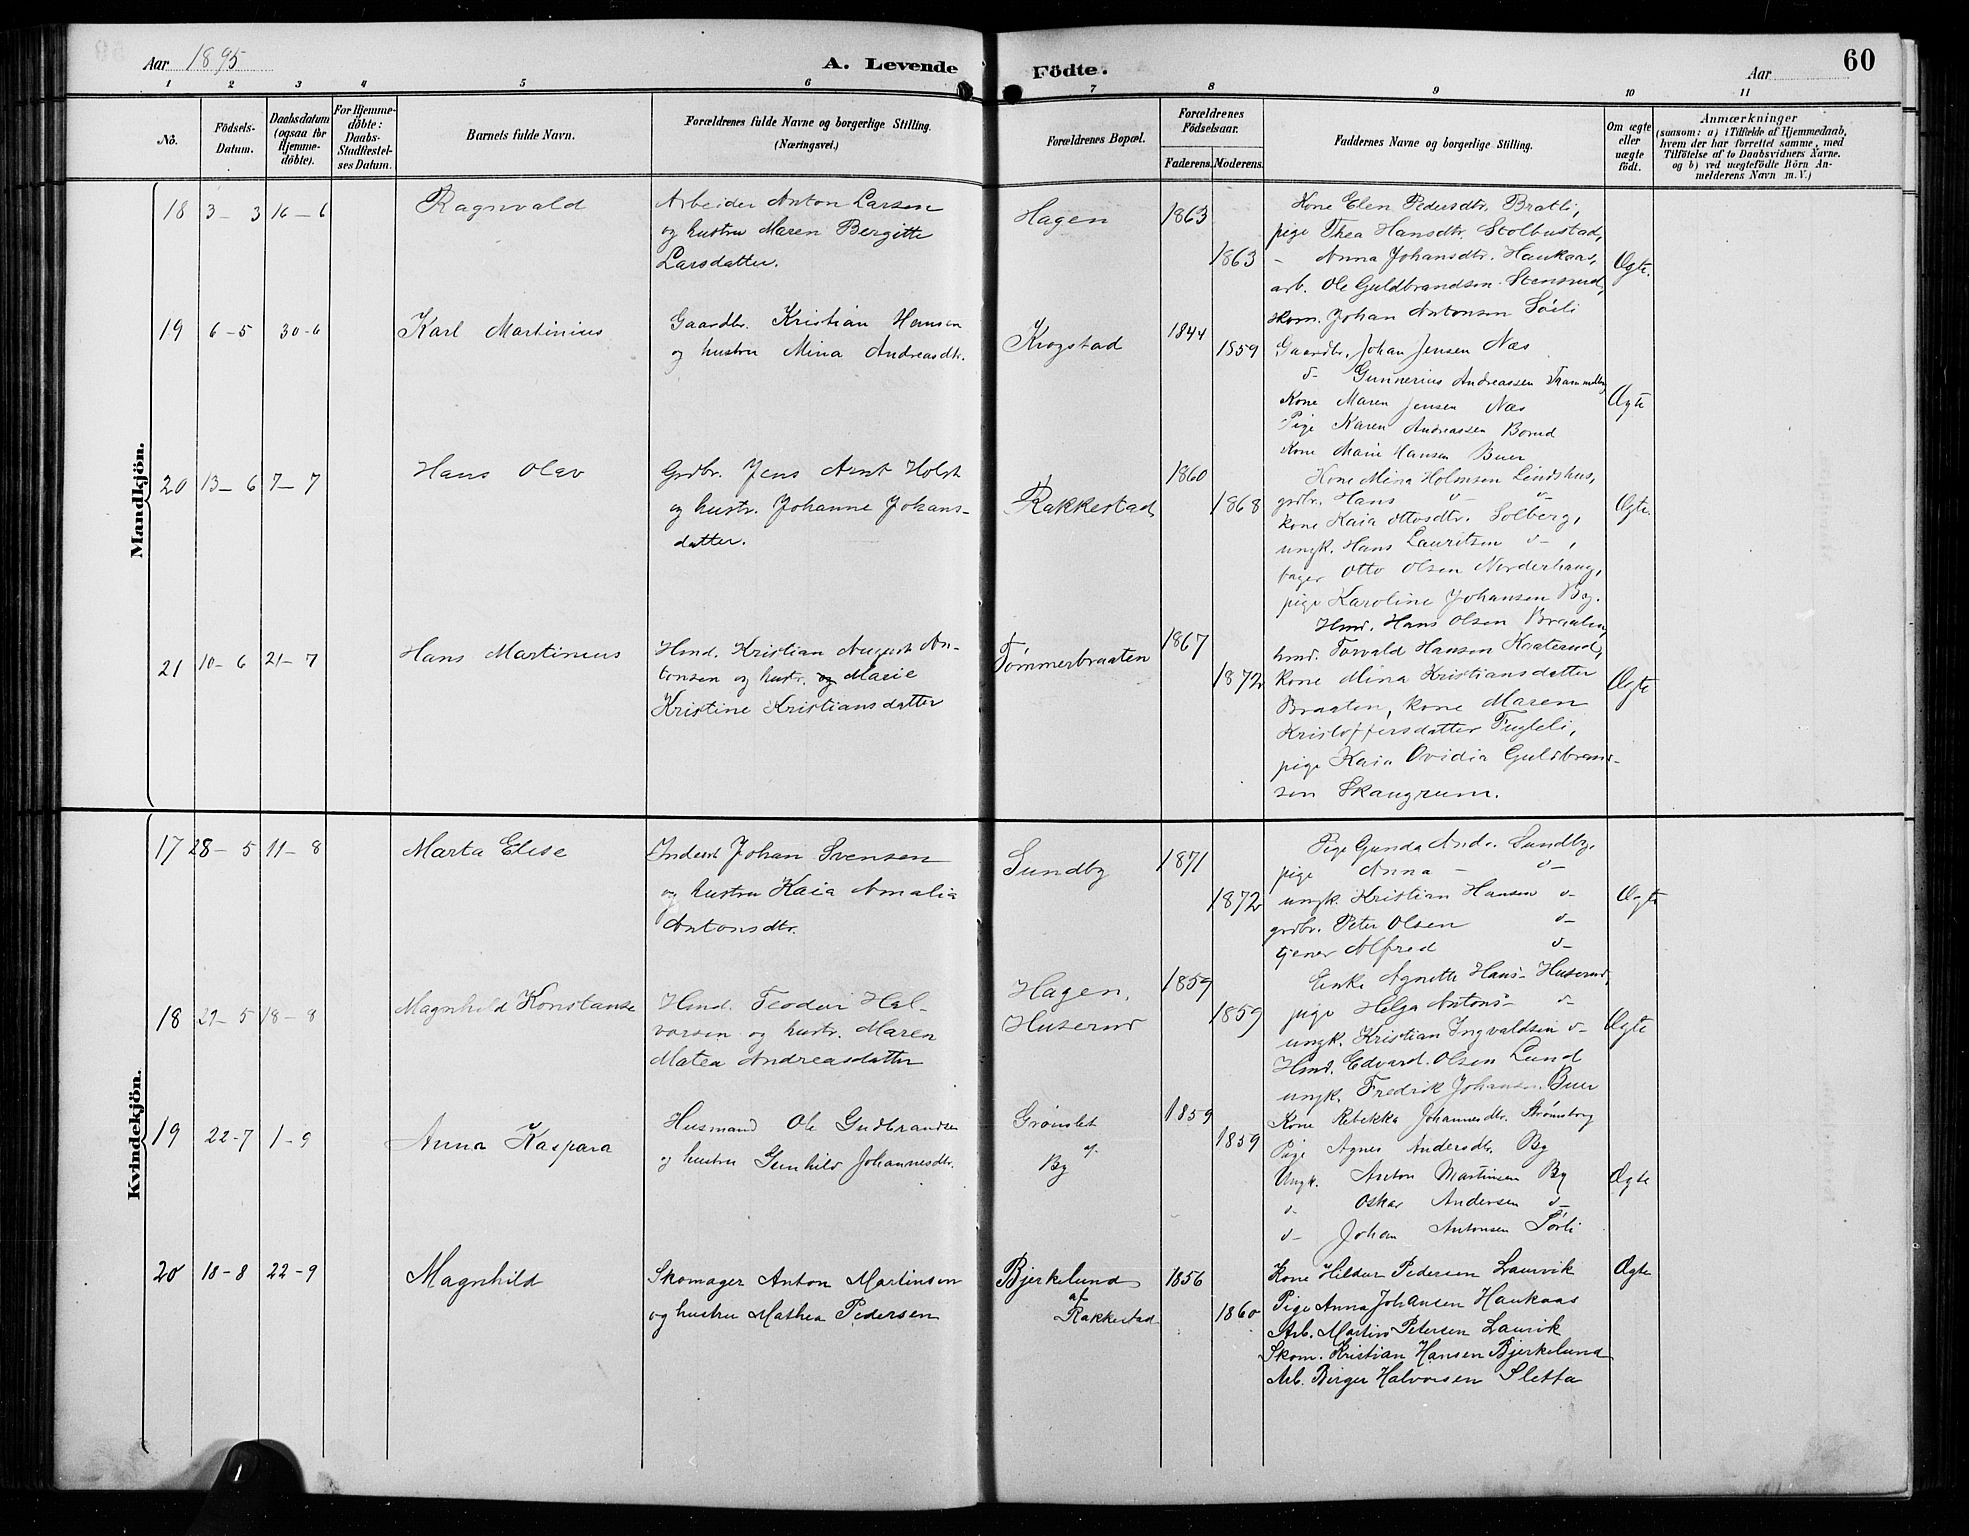 Aar 1895
A. Levende Födte.
Aar
60
1 2 3 4 5 6 7 8 9 10 11
No.
Födsels-Datum.
Daabsdatum (ogsaa for Hjemme-döbte).
For Hjemme-döbte: Daabs-Stadfæstelses Datum.
Barnets fulde Navn.
Forældrenes fulde Navne og borgerlige Stilling. (Næringsvei.)
Forældrenes Bopæl.
Forældrenes Födselsaar.
Faderens. Moderens.
Faddernes Navne og borgerlige Stilling.
Om ægte eller uægte födt.
Anmærkninger
(saasom: a) i Tilfælde af Hjemmedaab,
hvem der har forrettet samme, med
Tilföielse af to Daabsvidners Navne.
og b) ved uægtefödte Börn An-
melderens Navn m. V.)
Mandkjön.
18 3-3 16-6 Ragnvald
Arbeider Anton Larsen
og hustru Maren Bergitte
Larsdatter.
Hagen 1863 1863
Kone Elen Pedersdtr. Bratli,
pige Thea Hansdtr. Stolbustad,
- Anna Johansdtr. Haukaas,
arb. Ole Guldbrandsen Stensrud,
skom. Johan Antonsen Sörli
Ægte.
19 6-5 30-6 Karl Martinius
Gaardbr. Kristian Hansen
og hustru Mina Andreasdtr.
Krogstad 1844 1859
Gaardbr. Johan Jensen Næs
d- Gunnerius Andreassen
Kone Maren Jensen Næs
Pige Karen Andreassen Borud
Kone Marie Hansen Buer
Ægte
20 13-6 7-7 Hans Olav
Grdbr. Jens Arnt Holst
og hustr. Johanne Johans-
datter.
Rakkestad 1860 1868
Kone Mina Holmsen Lindshus,
grdbr. Hans d- d-
kone Kaia Ottosdtr. Solberg,
ungk. Hans Lauritsen d-,
bager Otto Olsen Norderhaug,
pige Karoline Johansen By.
Ægte.
21 10-6 21-7 Hans Martinius
Hmd. Kristian August An-
tonsen og hustr. og Marie
Kristine Kristiansdatter
Tømmerbraaten 1867 1872
Hmd. Hans Olsen Braaten,
hmd. Torvald Hansen Kraterud,
kone Mina Kristiansdatter
Braaten, kone Maren
Kristoffersdatter Fugleli,
pige Kaia Ovidia Guldbrand-
sen Skaugrum.
Ægte
Kvindekjön.
17 28-5 11-8 Marta Elise
Inderst Johan Svensen
og hustru Kaia Amalia
Antonsdtr.
Sundby 1871 1872
Pige Gunda Andr. Sundby,
pige Anna - d-
ungk. Kristian Hansen d-
grdbr. Peter Olsen d-
tjener Alfred d-
Ægte
18 29-5 18-8 Magnhild Konstanse
Hmd. Teodor Hal-
vorsen og hustr. Maren
Matea Andreasdatter
Hagen,
Huserud 1859 1859
Enke Agnethe Hans- Huserud,
pige Helga Antons- d-
ungk. Kristian Ingvaldsen d-
Hmd. Edvard Olsen Lund
ungk. Fredrik Johans. Buer
Ægte
19 22-7 1-9 Anna Kaspara
Husmand Ole Gudbrandsen
og hustru Gunhild Johannesdtr.
Grønslet
af
By 1859 1859
Kone Rebekka Johannesdtr. Strømsborg
Pige Agnes Andersdtr. By
Ungk. Anton Martinsen By
d- Oskar Andersen d-
d- Johan Antonsen Sørli
Ægte
20 18-8 22-9 Magnhild
Skomager Anton Martinsen
og hustru Mathea Pedersen
Bjerkelund
af
Rakkestad 1856 1860
Kone Hilda Pedersen Laurvik
Pige Anna Johansen Haukaas
Arb. Martin Petersen Laurvik
Skom. Kristian Hansen Bjerkelund
Arb. Birger Halvorsen Sletta
Ægte